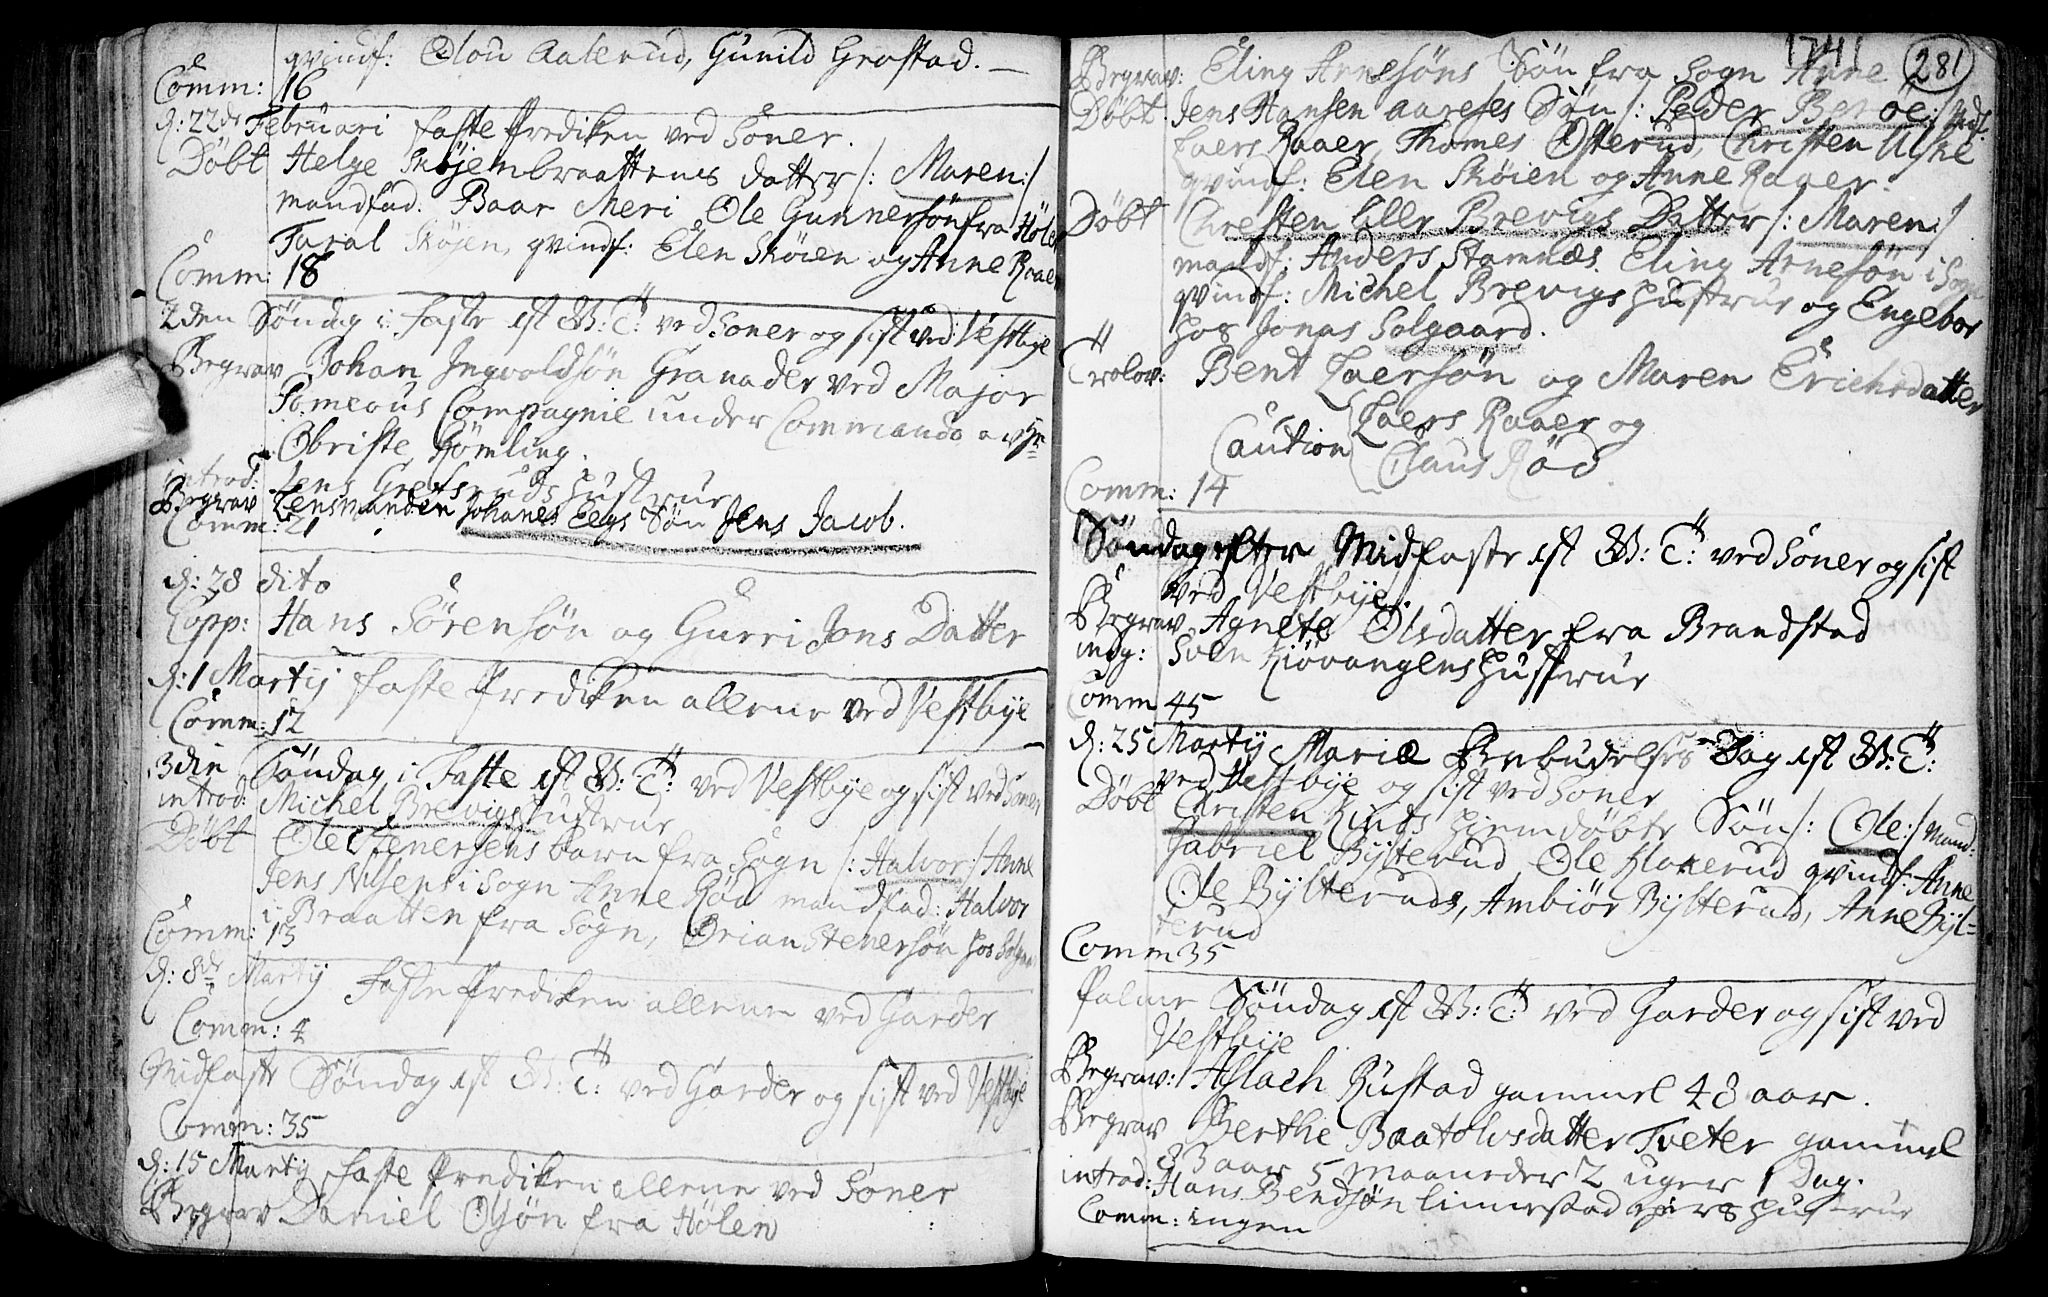 qvindf: Elon Aalerud, Gunild Grostad.
Comm: 16
d: 22de Februari Faste Prediken ved Soner.
Døbt Helge Skøjenbraattenes datter /: Maren :/
mandfad: Baar Meri, Ole Gunnersøn fra Hølen
Taral Skøjen, qvindf: Elen Skøien og Anne Raaer
Comm: 18
2den Søndag i Faste ist B: T: ved Soner og sist ved Vestbye
Begrav Johan Ingvoldsøn Granader ved Major
Compagnie under Commando av Hr
Obriste Rømling.
introd: Jens Grefsruds Hustrue
Begrav Lensmanden Johanes Eegs Søn Jens Jacob.
Comm: 21
d: 28 dito
Copp: Hans Sørensøn og Gurri Jons Datter
d: 1 Martij Faste Prediken allene ved Vestbye
Comm: 12
3die Søndag i Faste ist B: T: ved Vestbye og sist ved Soner
introd: Michel Brevigs Hustrue
Døbt Ole Stenersens barn fra Sogn /: Halvor :/ Anne
Jens Nilsens i Sogn Anne Rød mandfad: Halvor
i Braatten fra Sogn, Ørian Stenersøn hos
Comm: 13
d: 8de Martij Faste Prediken allene ved Garder
Comm: 4
Midfaste Søndag ist B: T: ved Garder og sist ved Vestbye
Comm: 35
d: 15 Martij Faste Prediken allene ved Soner
Begrav Daniel Olsøn fra Hølen
1741
281
Begrav: Eling Arnesøns Søn fra Sogn Arne
Døbt Jens Hansen Søn /: Peder Beroe :/
Laers Raaer, Thomes Østerud, Christen
qvindf: Elen Skøien og Anne Raaer.
Døbt Christen Lille Brevigs Datter /: Maren :/
mandf: Anders Stamnæs. Eling Arnesøn i Sogn
qvindf: Michel Brevigs Hustrue og Engebor
hos Jonas Solgaard.
Trolov: Bent Laersøn og Maren Erichsdatter
Caution Laers Raaer og
Claus Rød
Comm: 14
Søndag efter Midfaste ist B: T: ved Soner og sist
ved Vestbye.
Begrav Agnete Olsdatter fra Brandstad
indg: Sven Kiøvangens Hustrue
Comm 45
d: 25 Martij Mariæ Bebudelses Dag ist B: T:
ved Vestbye og sist ved Soner
Døbt Christen Kinds hiemdøbte Søn /: Ole :/ Mand:
Gabriel Bylterud, Ole Klokerud qvindf: Anne
Ole Bylteruds, Ambiør Bylterud, Anne Byl=
terud
Comm 35
Palme Søndag ist B: T: ved Garder og sist ved
Vestbye
Begrav: Aslach Rustad gammel 48 aar.
Begrav Berthe Baatolvsdatter Tveter gammel
33 aar 5 maaneder 2 uger 1 Dag.
introd: Hans Bendsøn Linnestad Hustrue
Comm: ingen